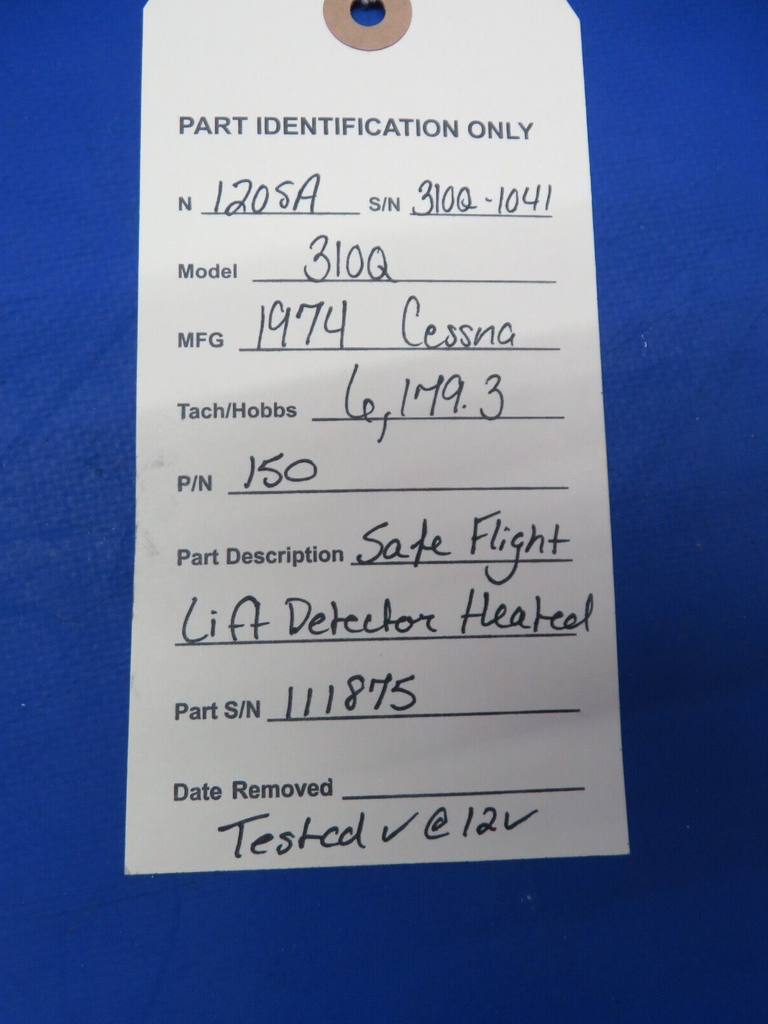 PART IDENTIFICATION ONLY
N 1208A S/N 310Q-1041
Model 310Q
MFG 1974 Cessna
Tach/Hobbs 6,179.3
P/N 150
Part Description Safe Flight
Lift Detector Heated
Part S/N 111875
Date Removed
Tested ✓ @ 12v